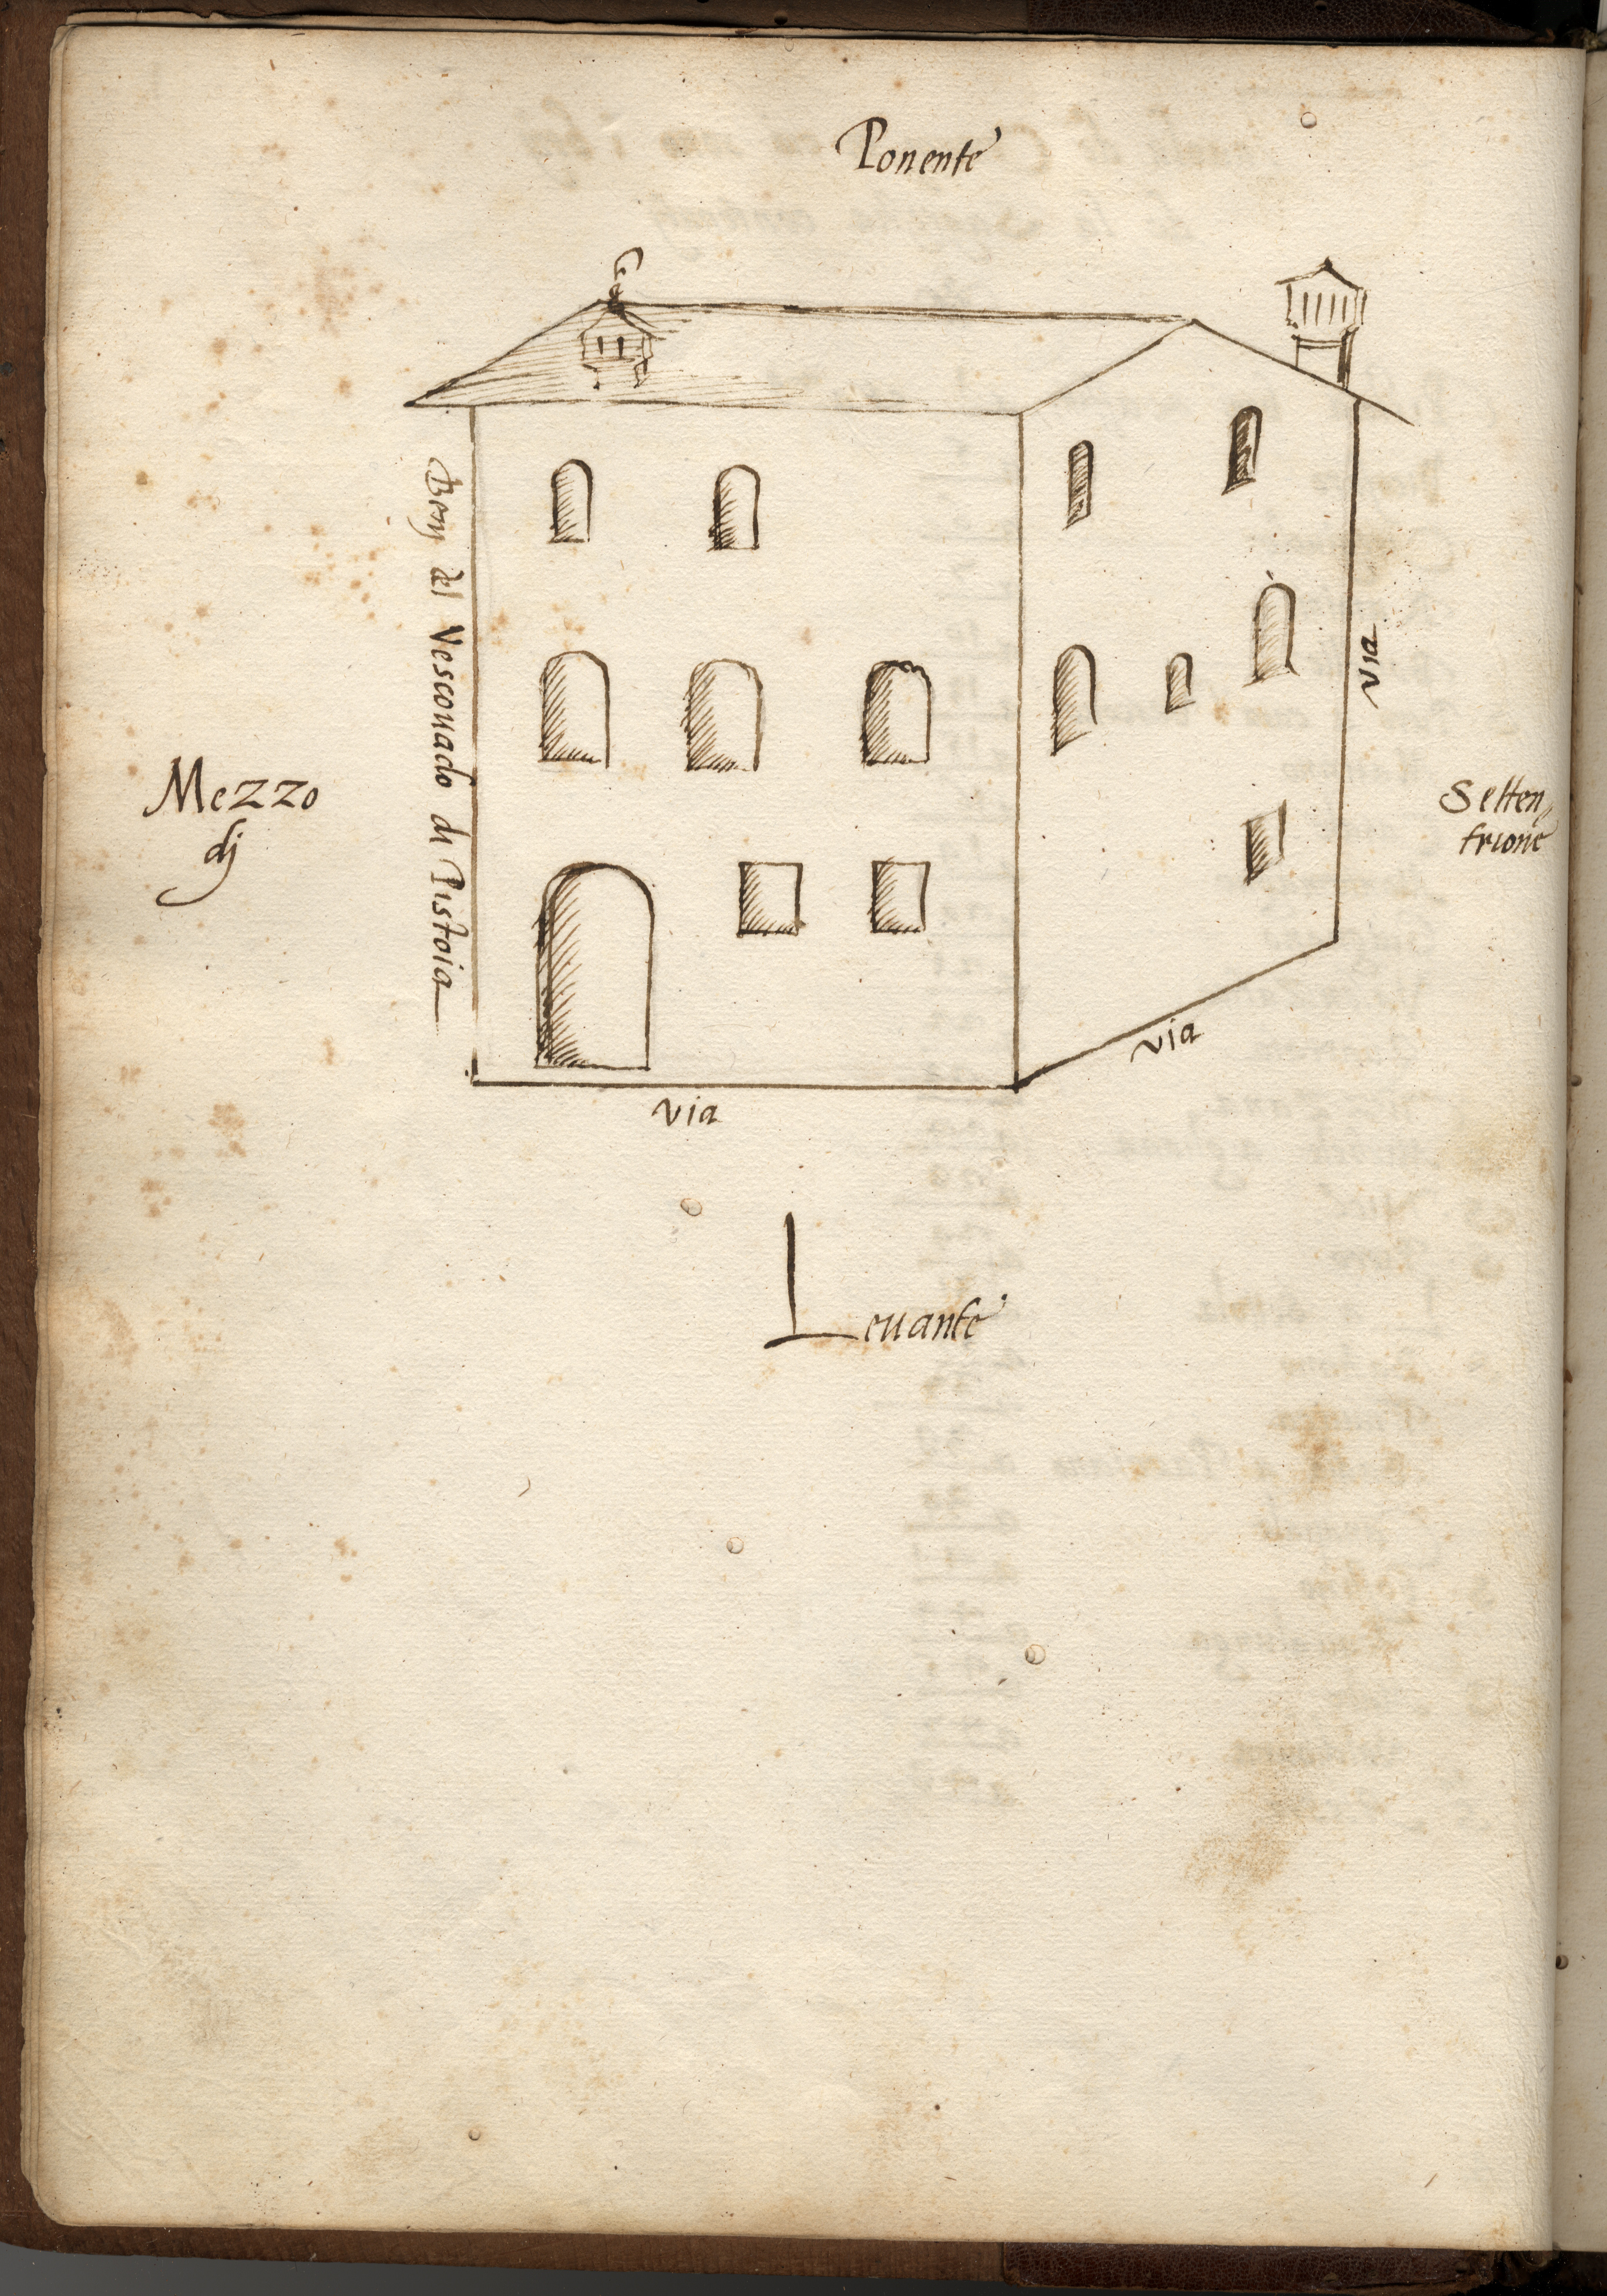 Ponente
Benj del Vescouado di Pistoia
via
Mezzo
dj
Setten,
trione
via
via
Leuante